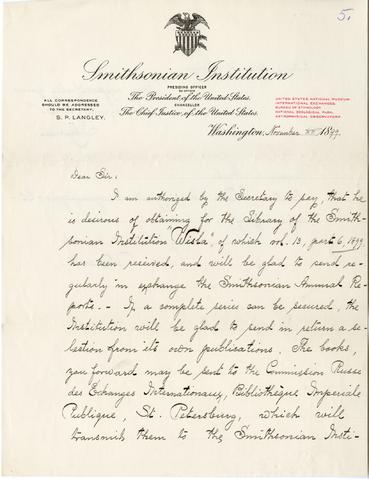 5.
Smithsonian Institution
PRESIDING OFFICER
EX OFFICIO
The President of the United States.
CHANCELLOR
The Chief Justice of the United States.
ALL CORRESPONDENCE
SHOULD BE ADDRESSED
TO THE SECRETARY,
S. P. LANGLEY.
UNITED STATES NATIONAL MUSEUM
INTERNATIONAL EXCHANGES
BUREAU OF ETHNOLOGY
NATIONAL ZOOLOGICAL PARK
ASTROPHYSICAL OBSERVATORY
Washington, November 1899.
Dear Sir:
I am authorized by the Secretary to say, that he
is desirous of obtaining for the Library of the Smith-
sonian Institution "Wisla", of which vol. 13, part 6, 1899
has been received, and will be glad to send re-
gularly in exchange the Smithsonian Annual Re-
ports. - If a complete series can be secured, the
Institution will be glad to send in return a se-
lection from its own publications. The books,
you forward may be sent to the Commission Russe
des Echanges Internationaux, Bibliothèque Imperiale
Publique, St. Petersburg, which will
transmit them to the Smithsonian Insti-